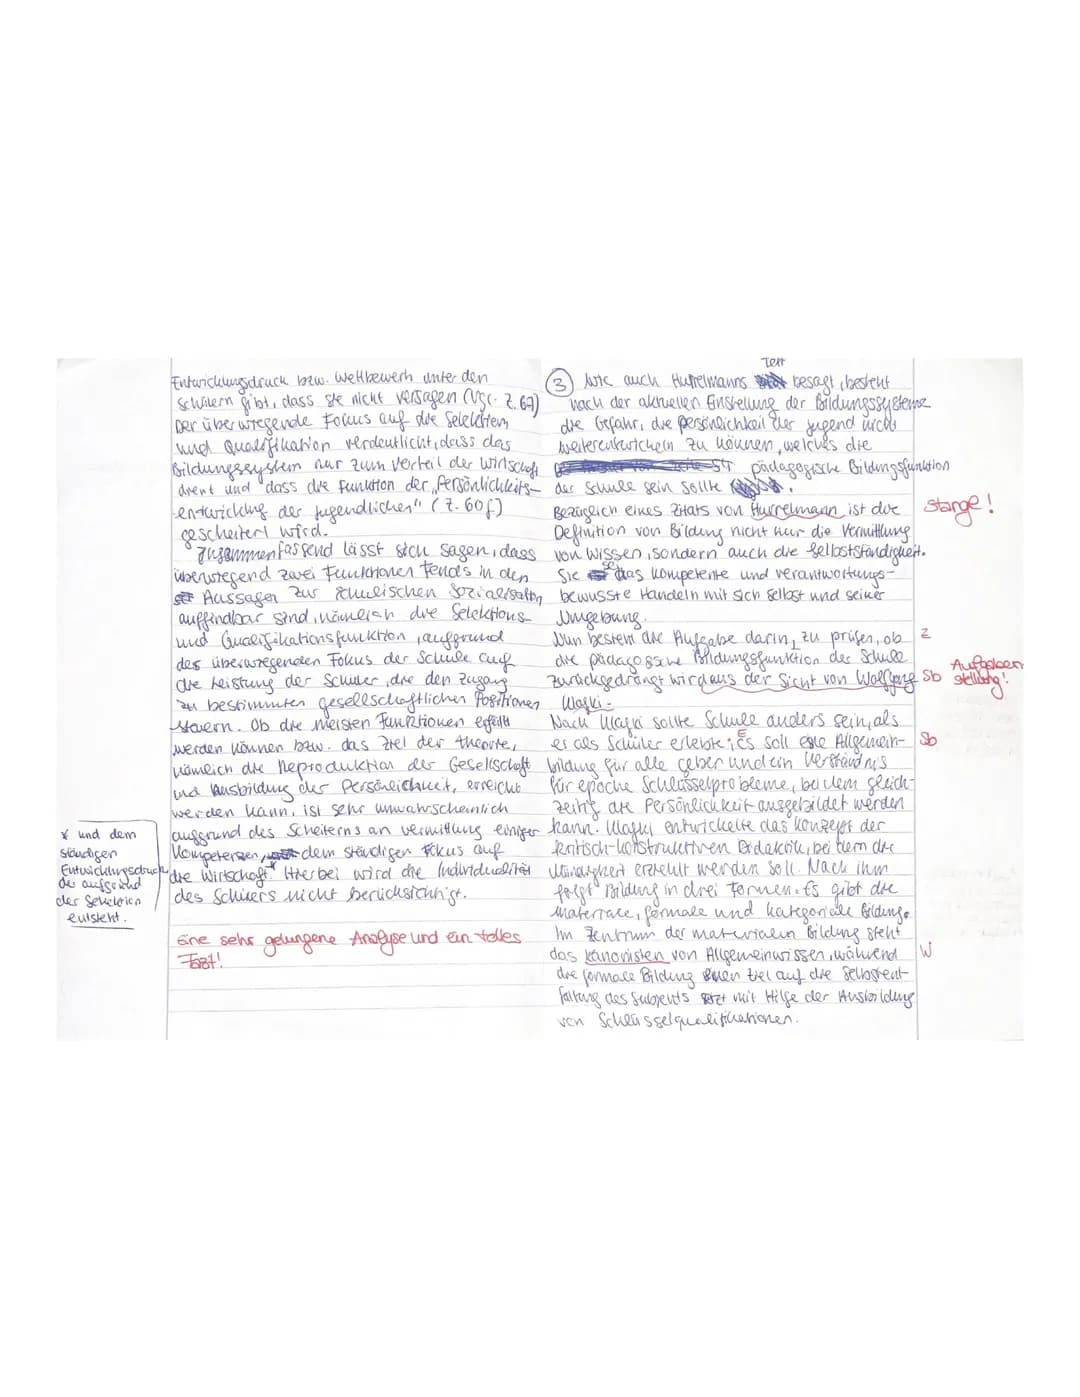 Entwicklungsdruck bzw. Wettbewerb unter den
Schülern gibt, dass sie nicht versagen (Vgl. Z. 67)
Der überwiegende Fokus auf die Selektion
und Qualifikation verdeutlicht, dass das
Bildungssystem nur zum Vorteil der Wirtschaft
dient und dass die Funktion der „Persönlichkeits-
entwicklung der Jugendlichen" (Z. 60 f.)
gescheitert wird.
Zusammenfassend lässt sich sagen, dass
überwiegend zwei Funktionen Fends in den
Aussagen zur schulischen Sozialisation
auffindbar sind, nämlich die Selektions-
und Qualifikationsfunktion, aufgrund
des überwiegenden Fokus der Schule auf
die Leistung der Schüler, die den Zugang
zu bestimmten gesellschaftlichen Positionen
steuern. Ob die meisten Funktionen erfüllt
werden können bzw. das Ziel der Theorie,
nämlich die Reproduktion der Gesellschaft
und Ausbildung der Persönlichkeit, erreicht
werden kann, ist sehr unwahrscheinlich
aufgrund des Scheiterns an Vermittlung einiger
Kompetenzen, dem ständigen Fokus auf
die Wirtschaft.* Hierbei wird die Individualität
des Schülers nicht berücksichtigt.
* und dem
ständigen
Entwicklungsdruck
der aufgrund
der Selektion
entsteht.
Eine sehr gelungene Analyse und ein tolles
Fazit!
3 Wie auch Hurrelmanns Text besagt, besteht
nach der aktuellen Einstellung der Bildungssysteme
die Gefahr, die Persönlichkeit der Jugend nicht
weiterentwickeln zu können, welches die
pädagogische Bildungsfunktion
der Schule sein sollte.
Bezüglich eines Zitats von Hurrelmann ist die
Stange!
Definition von Bildung nicht nur die Vermittlung
von Wissen, sondern auch die Selbstständigkeit.
Sie das kompetente und verantwortungs-
bewusste Handeln mit sich selbst und seiner
Umgebung.
Nun besteht die Aufgabe darin, zu prüfen, ob
Z
die pädagogische Bildungsfunktion der Schule
zurückgedrängt wird aus der Sicht von Wolfgang
Sb Aufgaben-
stellung!
Klafki.
Nach Klafki sollte Schule anders sein, als
er als Schüler erlebte; Es soll eine Allgemein-
Sb
bildung für alle geben und ein Verständnis
für epoche Schlüsselprobleme, bei dem gleich-
zeitig die Persönlichkeit ausgebildet werden
kann. Klafki entwickelte das Konzept der
kritisch-konstruktiven Didaktik, bei dem die
Mündigkeit erzielt werden soll. Nach ihm
folgt Bildung in drei Formen. Es gibt die
materiale, formale und kategoriale Bildung.
Im Zentrum der materialen Bildung steht
das kanonisten von Allgemeinwissen, während
W
die formale Bildung ihren Ziel auf die Selbstent-
faltung des Subjekts setzt mit Hilfe der Ausbildung
von Schlüsselqualifikationen.